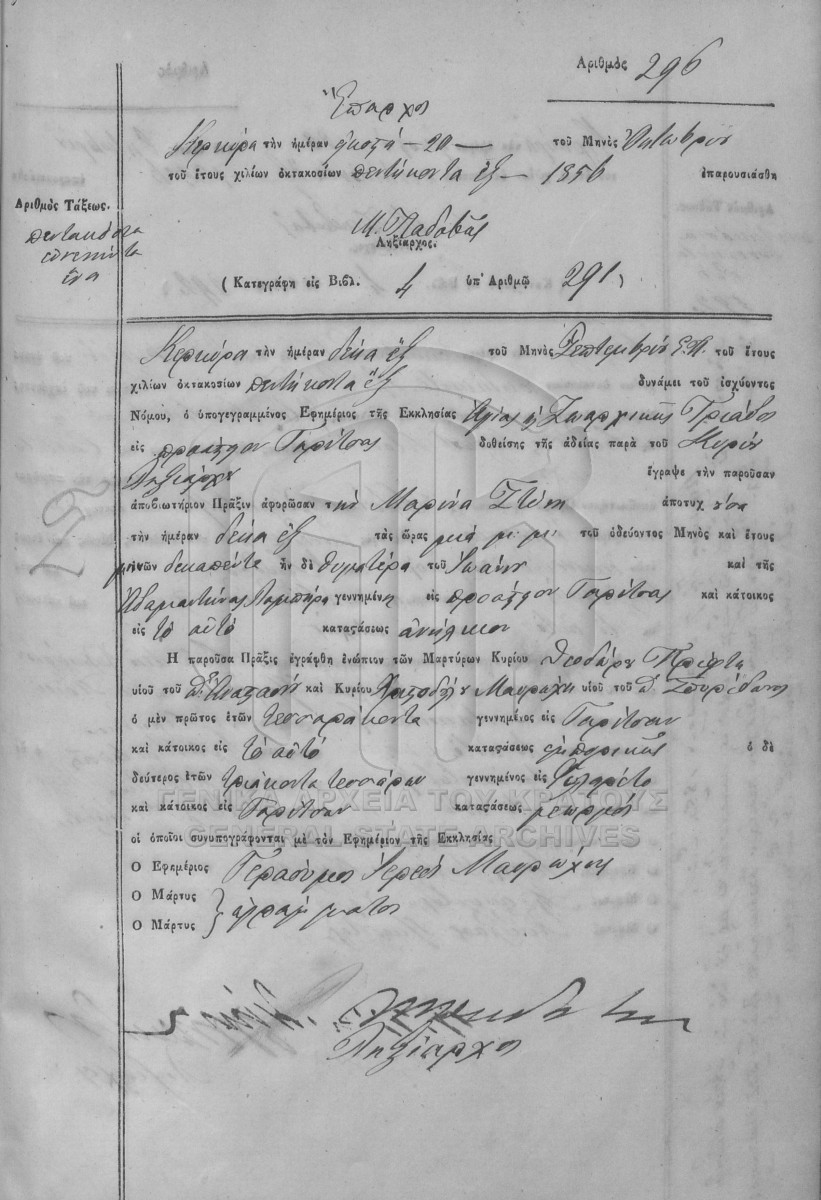 Ἀριθμὸς 296
Ἔπαρχος
Κερκύρα τὴν ἡμέραν εἰκοστὴ - 20 — τοῦ Μηνὸς Ὀκτωβρίου
τοῦ ἔτους χιλίων ὀκτακοσίων πεντήκοντα ἓξ — 1856 ἐπαρουσιάσθη
Ἀριθμὸς Τάξεως.
Μ. Παδοβᾶς
Ληξίαρχος.
ἕνα
( Κατεγράφη εἰς Βιβλ. 4 ὑπ' Ἀριθμῷ 291 )
Κερκύρα τὴν ἡμέραν δέκα ἓξ τοῦ Μηνὸς Σεπτεμβρίου Ε.Π. τοῦ ἔτους
χιλίων ὀκτακοσίων πεντήκοντα ἓξ δυνάμει τοῦ ἰσχύοντος
Νόμου, ὁ ὑπογεγραμμένος Ἐφημέριος τῆς Ἐκκλησίας Ἁγίας Ζωαρχικῆς Τριάδος
εἰς προάστιον Γαρίτσας δοθείσης τῆς ἀδείας παρὰ τοῦ Κυρίου
Ληξιάρχου ἔγραψε τὴν παροῦσαν
ἀποβιωτήριον Πρᾶξιν ἀφορῶσαν τὴν Μαρίνα ἀποτυχοῦσα
τὴν ἡμέραν δέκα ἓξ τὰς ὥρας μιὰ μ: μ: τοῦ ὁδεύοντος Μηνὸς καὶ ἔτους
μηνῶν δεκαπέντε ἦν δὲ θυγατέρα τοῦ Ἰωάννου καὶ τῆς
Ἀδαμαντίνας γεννημένη εἰς προάστιον Γαρίτσας καὶ κάτοικος
εἰς τὸ αὐτὸ καταστάσεως ἀνήλικον
Ἡ παροῦσα Πρᾶξις ἐγράφθη ἐνώπιον τῶν Μαρτύρων Κυρίου Θεοδώρου Πρίφτη
υἱοῦ τοῦ Ἀναστασίου καὶ Κυρίου Χριστοδούλου Μαυρωχη υἱοῦ τοῦ Σπυρίδωνος
ὁ μὲν πρῶτος ἐτῶν τεσσαράκοντα γεννημένος εἰς Γαρίτσαν
καὶ κάτοικος εἰς τὸ αὐτὸ καταστάσεως ἐμπορικῆς ὁ δὲ
δεύτερος ἐτῶν τριάκοντα τεσσάρων γεννημένος εἰς
καὶ κάτοικος εἰς Γαρίτσαν καταστάσεως γεωργὸς
ΓΕΝΙΚΑ ΑΡΧΕΙΑ ΤΟΥ ΚΡΑΤΟΥΣ
GENERAL STATE ARCHIVES
οἱ ὁποῖοι συνυπογράφονται μὲ τὸν Ἐφημέριον τῆς Ἐκκλησίας
Ὁ Ἐφημέριος Γεράσιμος Ἱερεὺς Μαυρωχης
Ὁ Μάρτυς
Ὁ Μάρτυς ἀγράμματοι
Ληξίαρχος